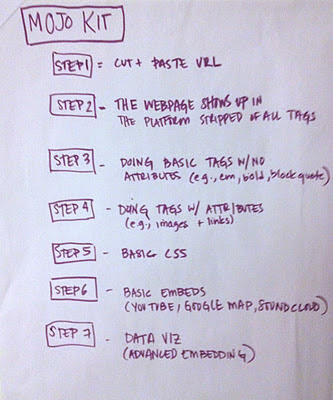 MOJO KIT
STEP 1 = CUT + PASTE URL
STEP 2 - THE WEBPAGE SHOWS UP IN
THE PLATFORM STRIPPED OF ALL TAGS
STEP 3 - DOING BASIC TAGS W/NO
ATTRIBUTES (e.g., em, bold, block quote)
STEP 4 - DOING TAGS W/ ATTRIBUTES
(e.g., images + links)
STEP 5 - BASIC CSS
STEP 6 - BASIC EMBEDS
(YOUTUBE, GOOGLE MAP, SOUNDCLOUD)
STEP 7 - DATA VIZ
(ADVANCED EMBEDDING)